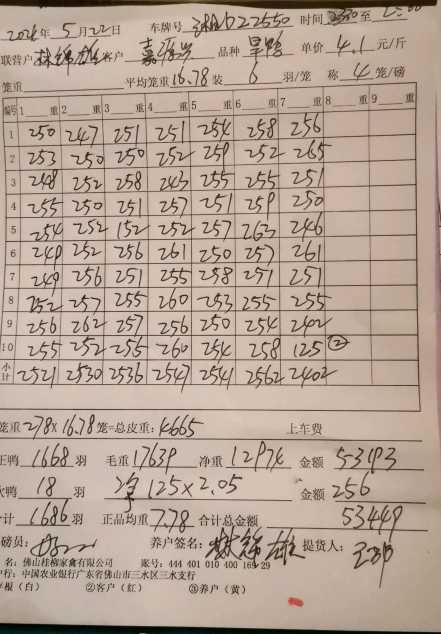 2024年 5月22日 车牌号 湘b22550 时间 至
联营户 林锦雄 客户 品种 旱鸭 单价 4.1 元/斤
笼重 平均笼重 16.78 装 6 羽/笼 称 4 笼/磅
编号 1 重 2 重 3 重 4 重 5 重 6 重 7 重 8 重 9 重
1 250 247 251 251 254 258 256
2 253 250 250 252 259 252 265
3 248 252 258 243 255 255 251
4 255 250 251 257 251 259 250
5 254 252 152 252 257 263 246
6 249 252 256 261 250 257 261
7 249 256 251 255 258 251 251
8 252 257 255 260 253 255 255
9 256 262 257 256 250 254 242
10 255 252 255 260 254 258 125 ②
小计 2521 2530 2536 2547 2541 2562 2402
笼重 278 X 16.78 笼=总皮重: 4665 上车费
正鸭 1668 羽 毛重 17639 净重 12974 金额 53193
次鸭 18 羽 净 125×2.05 金额 256
合计 1686 羽 正品均重 7.78 合计总金额 53449
磅员: 养户签名: 林锦雄 提货人:
名: 佛山桂柳家禽有限公司 账号: 444 401 010 400 169 29
户行: 中国农业银行广东省佛山市三水区三水支行
存根(白) ②客户(红) ③养户(黄)